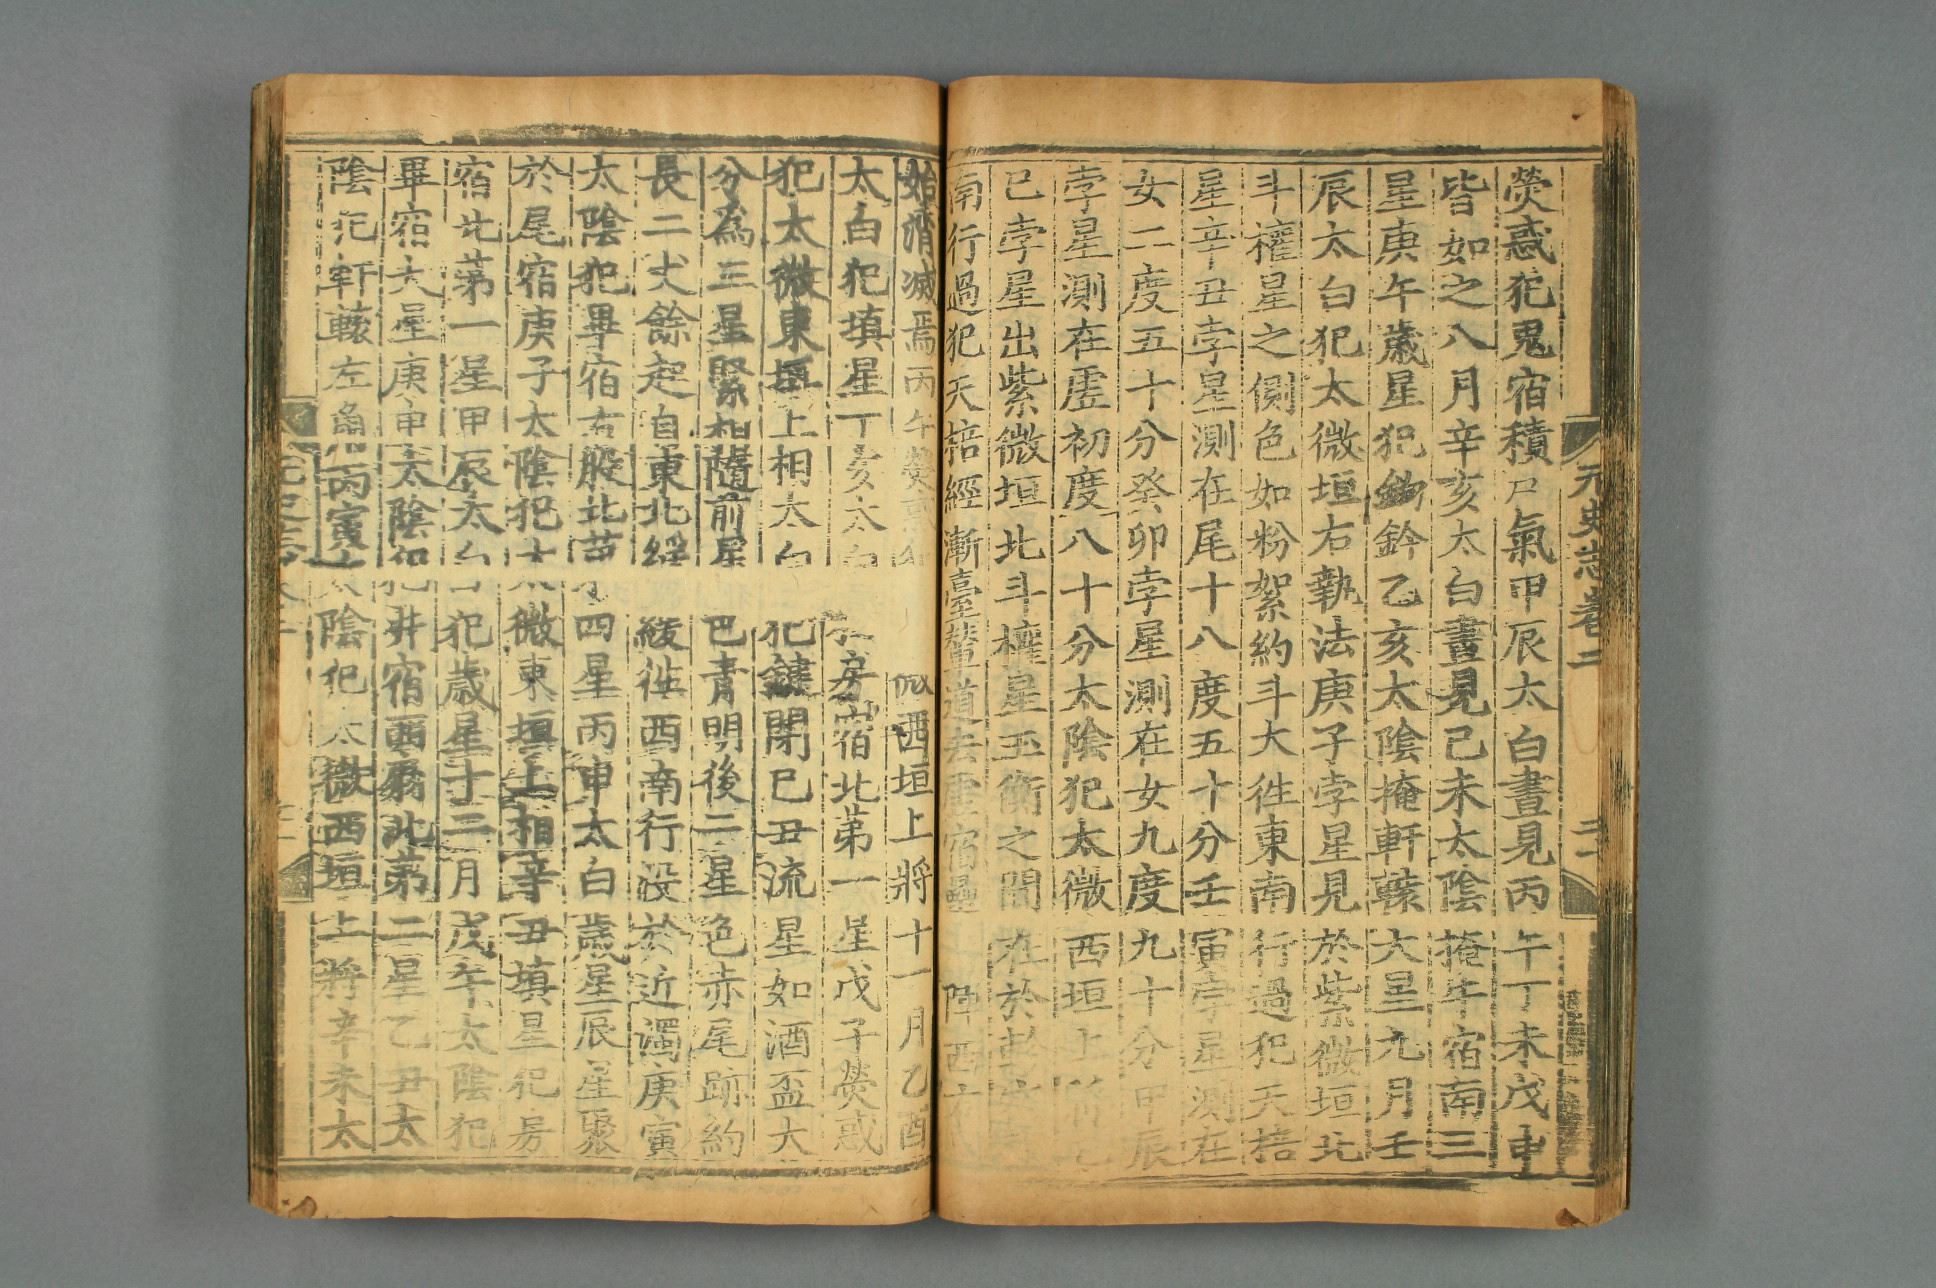 元史志卷二
二
熒惑犯鬼宿積尸氣甲辰太白晝見丙午丁未戊申
皆如之八月辛亥太白晝見己未太陰掩牛宿南三
星庚午歲星犯鉤鈐乙亥太陰掩軒轅大星九月壬
辰太白犯太微垣右執法庚子孛星見於紫微垣北
斗權星之側色如粉絮約斗大徃東南行過犯天棓
星辛丑孛星測在尾十八度五十分壬寅孛星測在
女二度五十分癸卯孛星測在女九度九十分甲辰
孛星測在虛初度八十分太陰犯太微西垣上將
巳孛星出紫微垣北斗權星玉衡之間在於
南行過犯天棓經漸臺輦道去虛宿壘 陣西
始消滅焉丙午熒惑 微西垣上將十一月乙酉
太白犯填星丁亥太白 房宿北第一星戊子熒惑
犯太微東垣上相太白犯鍵閉己丑流星如酒盃大
分為三星緊相隨前星 色青明後二星色赤尾跡約
長二丈餘起自東北緩緩徃西南行沒於近濁庚寅
太陰犯畢宿右股北第 四星丙申太白歲星辰星聚
於尾宿庚子太陰犯太微東垣上相辛丑填星犯房
宿北第一星甲辰太白犯歲星十二月戊午太陰犯
畢宿大星庚申太陰犯井宿西扇北第二星乙丑太
陰犯軒轅左角丙寅太陰犯太微西垣上將辛未太